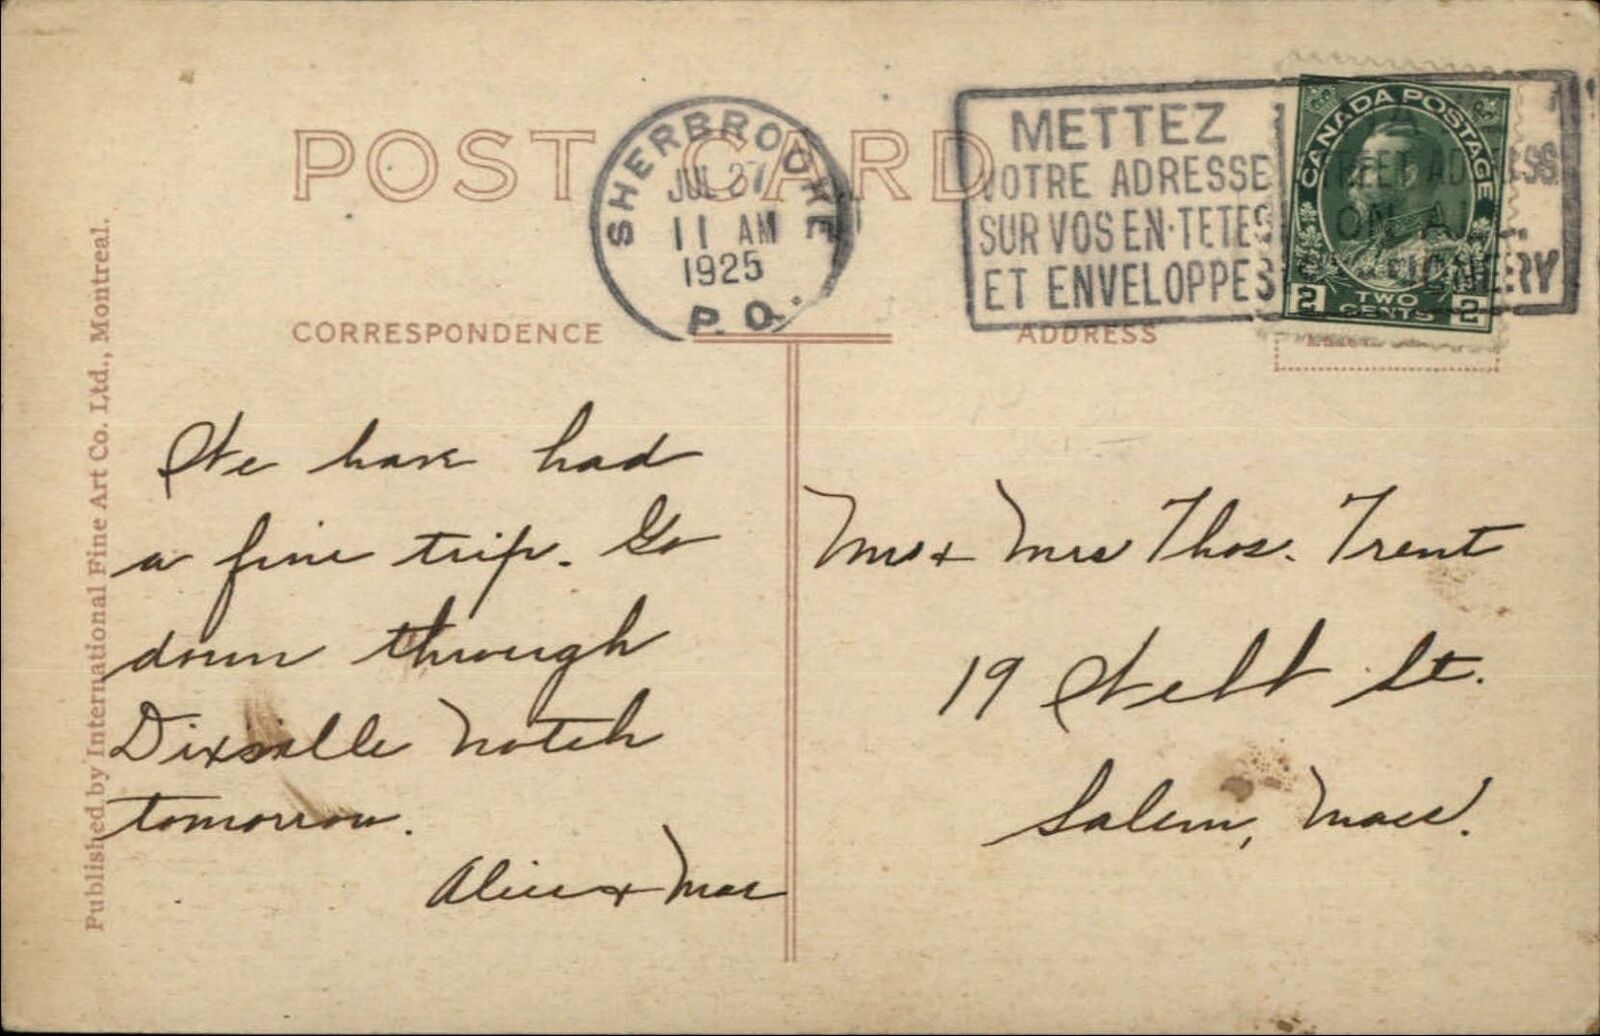 POST CARD
SHERBROOKE
JUL 27
11 AM
1925
P.Q.
METTEZ
VOTRE ADRESSE
SUR VOS EN-TETES
ET ENVELOPPES
ADDRESS
ON ALL
STATIONERY
CANADA POSTAGE
2 TWO CENTS 2
CORRESPONDENCE
ADDRESS
We have had
a fine trip. Go
down through
Dixville Notch
tomorrow.
Alice + Mac
Mr + Mrs Thos. Trent
19 Webb St.
Salem, Mass.
Published by International Fine Art Co. Ltd., Montreal.